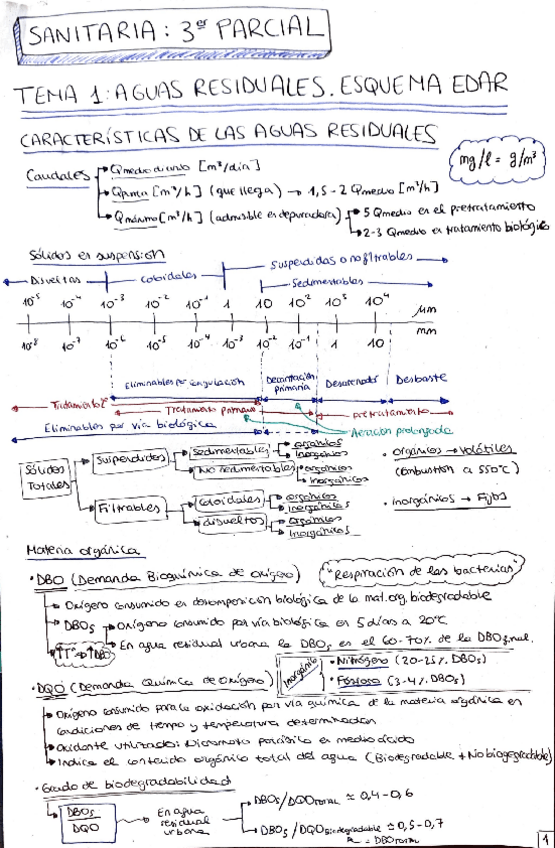 SANITARIA: 3er PARCIAL
TEMA 1: AGUAS RESIDUALES. ESQUEMA EDAR
CARACTERÍSTICAS DE LAS AGUAS RESIDUALES
mg/l = g/m³
Caudales
Qmedio diario [m³/día]
Qpunta [m³/h] (que llega) → 1,5 - 2 Qmedio [m³/h]
Qmáximo [m³/h] (admisible en depuradora)
5 Qmedio en el pretratamiento
2-3 Qmedio en tratamiento biológico
Sólidos en suspensión
Suspendidos o no filtrables
Disueltos
Coloidales
Sedimentables
10⁻⁵ 10⁻⁴ 10⁻³ 10⁻² 10⁻¹ 1 10 10² 10³ 10⁴ μm
10⁻⁸ 10⁻⁷ 10⁻⁶ 10⁻⁵ 10⁻⁴ 10⁻³ 10⁻² 10⁻¹ 1 10 mm
Eliminables por coagulación
Decantación primaria
Desarenador
Desbaste
Tratamiento
Tratamiento primario
Pretratamiento
Eliminables por vía biológica
Aeración prolongada
Sólidos Totales
Suspendidos
Sedimentables
orgánicos
Inorgánicos
No sedimentables
orgánicos
Inorgánicos
Filtrables
Coloidales
orgánicos
Inorgánicos
disueltos
Orgánicos
Inorgánicos
· orgánicos → Volátiles
(combustión a 550°C)
· Inorgánicos → Fijos
Materia orgánica
· DBO (Demanda Bioquímica de oxígeno)
"Respiración de las bacterias"
Oxígeno consumido en descomposición biológica de la mat. org. biodegradable
DBO₅ → Oxígeno consumido por vía biológica en 5 días a 20°C
En agua residual urbana la DBO₅ es el 60-70% de la DBO final.
↑T° → ↑DBO
· DQO (Demanda Química de Oxígeno)
Inorgánico
· Nitrógeno (20-25% DBO₅)
· Fósforo (3-4% DBO₅)
Oxígeno consumido para la oxidación por vía química de la materia orgánica en
condiciones de tiempo y temperatura determinadas
Oxidante utilizado: Dicromato potásico en medio ácido
Indica el contenido orgánico total del agua (Biodegradable + No biodegradable)
· Grado de biodegradabilidad
DBO₅
DQO
En agua residual urbana
DBO₅/DQO TOTAL ≈ 0,4 - 0,6
DBO₅/DQO Biodegradable ≈ 0,5 - 0,7
= DBO TOTAL
1